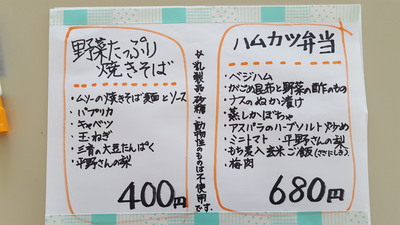 野菜たっぷり
焼きそば
・ムソーの焼きそば麺とソース
・パプリカ
・キャベツ
・玉ねぎ
・三育の大豆たんぱく
・平野さんの梨
400円
乳製品・砂糖・動物性のものは不使用です。
ハムカツ弁当
・ベジハム
・がごめ昆布と野菜の酢のもの
・ナスのぬか漬け
・蒸しかぼちゃ
・アスパラのハーブソルト炒め
・ミニトマト ・平野さんの梨
・もち麦入玄米ご飯(ささにしき)
・梅肉
680円